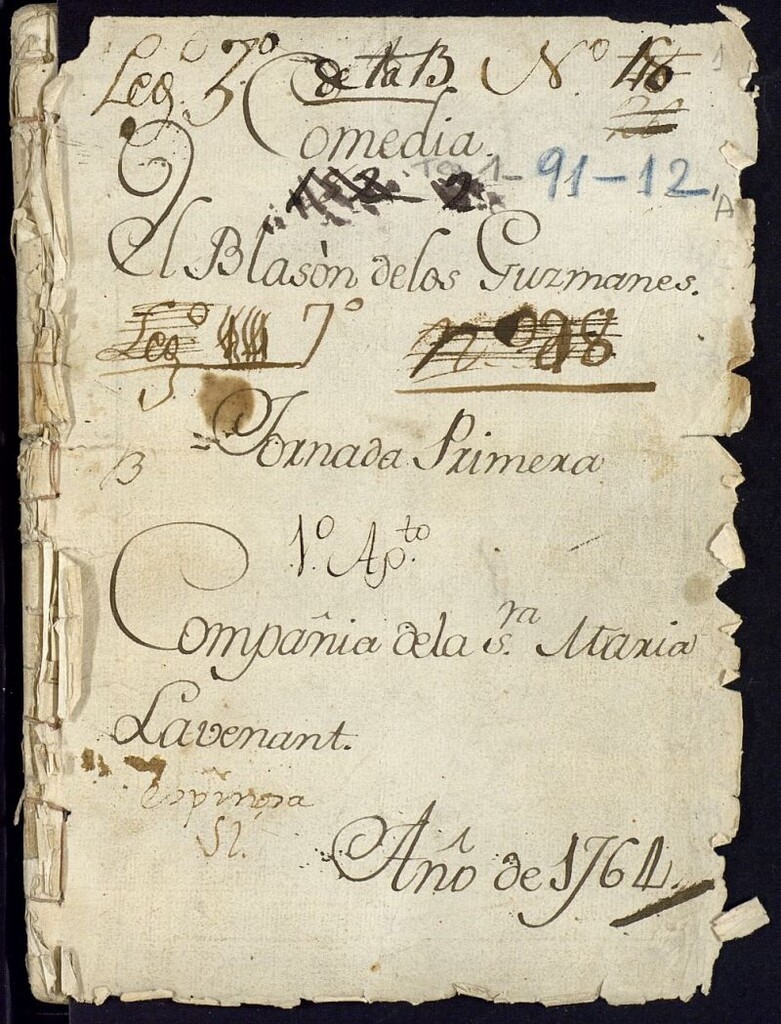 Leg.º 7º de la B Nº 18
Comedia
1-91-12
A
El Blasòn delos Guzmanes.
Leg.º 7º nº 28
Jornada Primera
B
1º Ap.to
Compañia dela s.ra Maria
Lavenant.
Espinosa
Año de 1764.